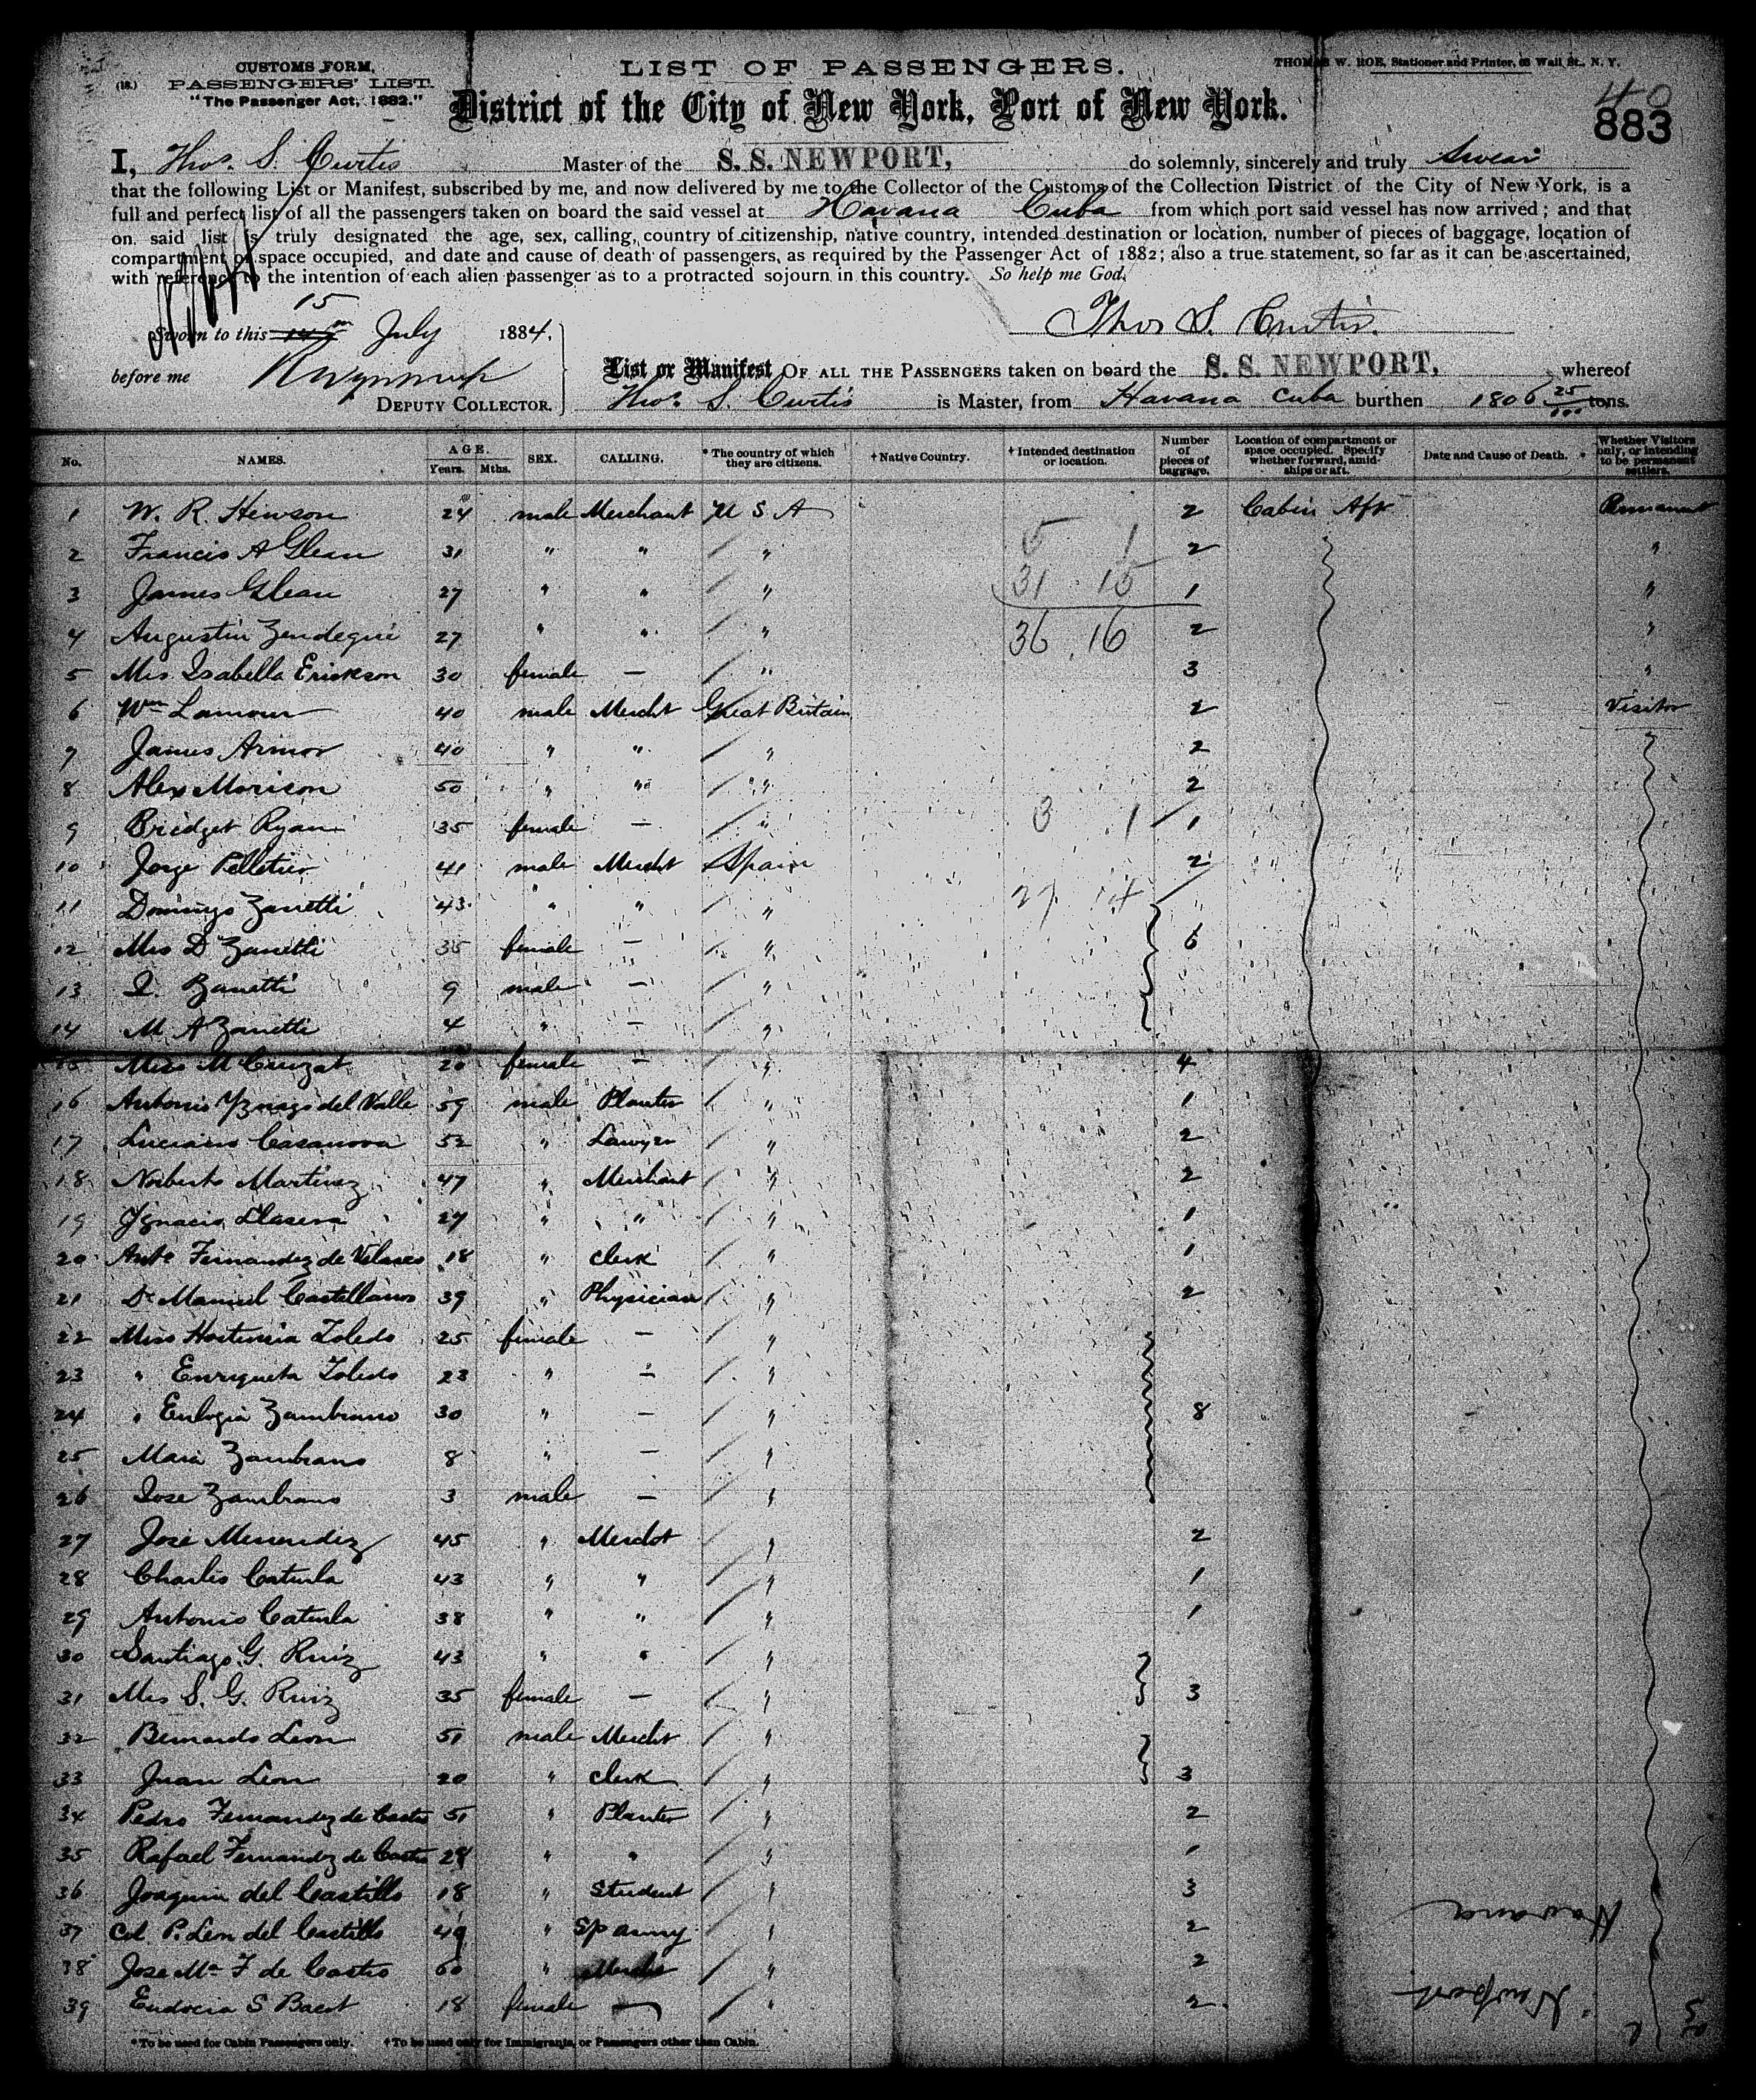 (18.) CUSTOMS FORM,
PASSENGERS' LIST.
"The Passenger Act, 1882."
LIST OF PASSENGERS.
THOMAS W. ROE, Stationer and Printer, 63 Wall St., N. Y.
District of the City of New York, Port of New York.
40
883
I, Thos. S. Curtis Master of the S. S. NEWPORT, do solemnly, sincerely and truly swear
that the following List or Manifest, subscribed by me, and now delivered by me to the Collector of the Customs of the Collection District of the City of New York, is a
full and perfect list of all the passengers taken on board the said vessel at Havana Cuba from which port said vessel has now arrived; and that
on said list is truly designated the age, sex, calling, country of citizenship, native country, intended destination or location, number of pieces of baggage, location of
compartment or space occupied, and date and cause of death of passengers, as required by the Passenger Act of 1882; also a true statement, so far as it can be ascertained,
with reference to the intention of each alien passenger as to a protracted sojourn in this country. So help me God.
15
Sworn to this 14th July 1884,
Thos S. Curtis.
before me
DEPUTY COLLECTOR.
List or Manifest OF ALL THE PASSENGERS taken on board the S. S. NEWPORT, whereof
Thos. S. Curtis is Master, from Havana Cuba burthen 1806 25/100 tons.
No. NAMES. AGE. Years. Mths. SEX. CALLING. * The country of which they are citizens. † Native Country. † Intended destination or location. Number of pieces of baggage. Location of compartment or space occupied. Specify whether forward, amidships or aft. Date and Cause of Death. * Whether Visitors only, or intending to be permanent settlers.
1 W. R. Hewson 24 male Merchant U S A 2 Cabin Aft Permanent
2 Francis A Glean 31 " " " 5 1 2 "
3 James Glean 27 " " " 31 15 1 "
4 Augustin Zendegui 27 " " " 36 16 2 "
5 Mrs. Isabella Erickson 30 female — " 3 "
6 Wm Lamour 40 male Mercht Great Britain 2 Visitor
7 James Armor 40 " " " 2
8 Alex Morison 50 " " " 2
9 Bridget Ryan 35 female — " 3 1 1
10 Jorge Pelletier 41 male Mercht Spain 2
11 Domingo Zanetti 43 " " " 27 14
12 Mrs D Zanetti 35 female — " 6
13 D. Zanetti 9 male — "
14 M A Zanetti 4 " — "
15 Miss M Cruzat 20 female — " 4
16 Antonio Yznaga del Valle 59 male Planter " 1
17 Luciano Casanova 52 " Lawyer " 2
18 Norberto Martinez 47 " Merchant " 2
19 Ygnacio Llasera 27 " " " 1
20 Anto Fernandez de Velasco 18 " Clerk " 1
21 Dr Manuel Castellanos 39 " Physician " 2
22 Miss Hortensia Toledo 25 female — "
23 " Enriqueta Toledo 23 " — "
24 " Eulogia Zambrano 30 " — " 8
25 Maria Zambrano 8 " — "
26 Jose Zambrano 3 male — "
27 José Menendez 45 " Mercht " 2
28 Charlis Caturla 43 " " " 1
29 Antonio Caturla 38 " " " 1
30 Santiago G. Ruiz 43 " " "
31 Mrs S. G. Ruiz 35 female — " 3
32 Bernardo Leon 51 male Mercht "
33 Juan Leon 20 " Clerk " 3
34 Pedro Fernandez de Castro 51 " Planter " 2
35 Rafael Fernandez de Castro 28 " " " 1
36 Joaquin del Castillo 18 " Student " 3
37 Col P. Leon del Castillo 49 " Sp army " 2
38 Jose Ma F de Castro 60 " Mercht " 2
39 Eudocia S Bacot 18 female — " 2
Havana
Newport
* To be used for Cabin Passengers only. † To be used only for Immigrants, or Passengers other than Cabin.